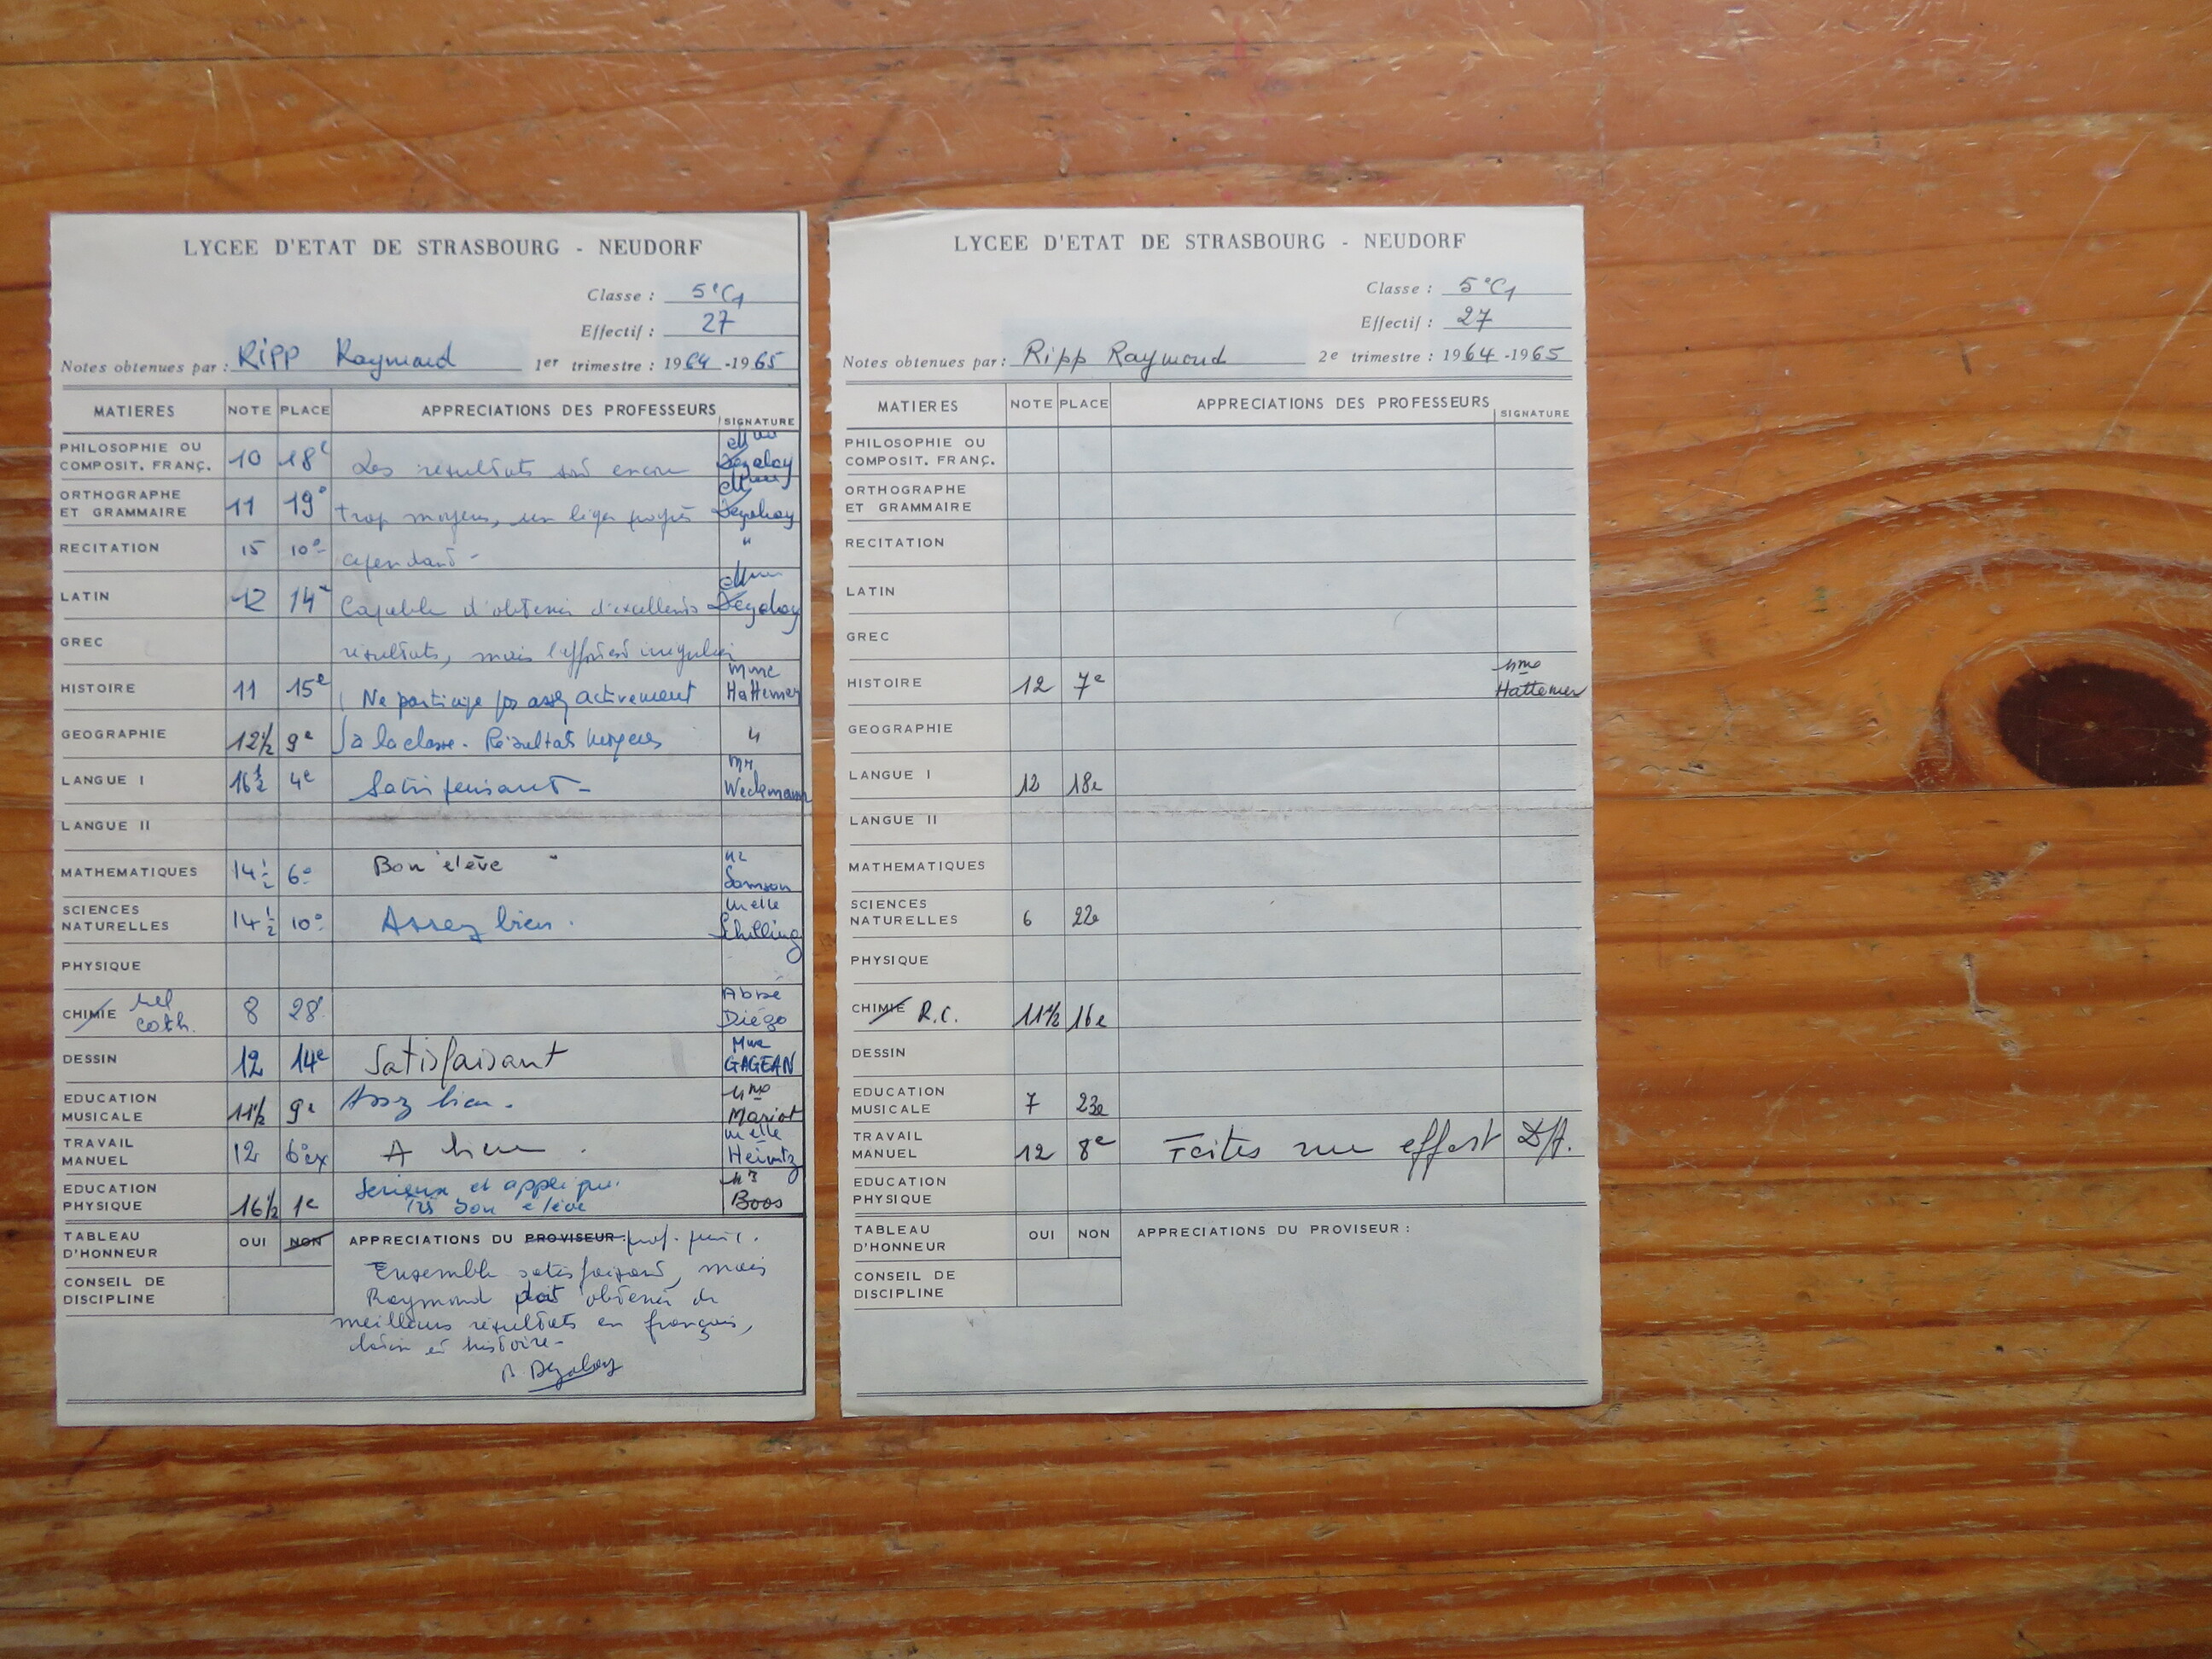 LYCEE D'ETAT DE STRASBOURG - NEUDORF
Classe : 5eC1
Effectif : 27
Notes obtenues par : Ripp Raymond 1er trimestre : 1964-1965
MATIERES NOTE PLACE APPRECIATIONS DES PROFESSEURS SIGNATURE
PHILOSOPHIE OU COMPOSIT. FRANÇ. 10 18e Les résultats sont encore Mme Dezalay
ORTHOGRAPHE ET GRAMMAIRE 11 19e trop moyens, un léger progrès Mme Dezalay
RECITATION 15 10e cependant - "
LATIN 12 14e Capable d'obtenir d'excellents Mme Dezalay
GREC résultats, mais l'effort est irrégulier
HISTOIRE 11 15e Ne participe pas assez activement Mme Hattemer
GEOGRAPHIE 12 1/2 9e à la classe. Résultats moyens "
LANGUE I 16 1/2 4e Satisfaisant - Mr Weckmann
LANGUE II
MATHEMATIQUES 14 1/2 6e Bon élève Mr Samson
SCIENCES NATURELLES 14 1/2 10e Assez bien. Melle Schilling
PHYSIQUE
CHIMIE rel cath. 8 28e Abbé Diégo
DESSIN 12 14e Satisfaisant Mme GAGEAN
EDUCATION MUSICALE 11 1/2 9e Assez bien. Mme Mariot
TRAVAIL MANUEL 12 6e ex A bien. Melle Heintz
EDUCATION PHYSIQUE 16 1/2 1e Sérieux et appliqué. Très bon élève Mr Boos
TABLEAU D'HONNEUR OUI NON APPRECIATIONS DU PROVISEUR prof. princ.
CONSEIL DE DISCIPLINE
Ensemble satisfaisant, mais
Raymond doit obtenir de
meilleurs résultats en français,
latin et histoire -
Dezalay
LYCEE D'ETAT DE STRASBOURG - NEUDORF
Classe : 5eC1
Effectif : 27
Notes obtenues par : Ripp Raymond 2e trimestre : 1964-1965
MATIERES NOTE PLACE APPRECIATIONS DES PROFESSEURS SIGNATURE
PHILOSOPHIE OU COMPOSIT. FRANÇ.
ORTHOGRAPHE ET GRAMMAIRE
RECITATION
LATIN
GREC
HISTOIRE 12 7e Mme Hattemer
GEOGRAPHIE
LANGUE I 12 18e
LANGUE II
MATHEMATIQUES
SCIENCES NATURELLES 6 22e
PHYSIQUE
CHIMIE R.C. 11 1/2 16e
DESSIN
EDUCATION MUSICALE 7 23e
TRAVAIL MANUEL 12 8e Faites un effort
EDUCATION PHYSIQUE
TABLEAU D'HONNEUR OUI NON APPRECIATIONS DU PROVISEUR :
CONSEIL DE DISCIPLINE